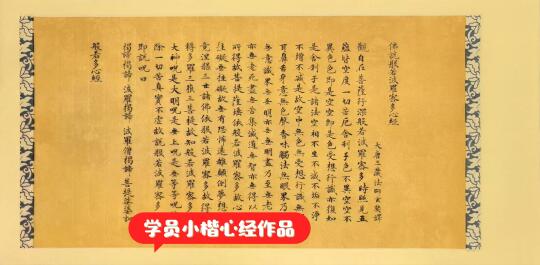 佛說般若波羅蜜多心經
大唐三藏法師玄奘譯
觀自在菩薩行深般若波羅蜜多時照見五
蘊皆空度一切苦厄舍利子色不異空空不
異色色即是空空即是色受想行識亦復如
是舍利子是諸法空相不生不滅不垢不淨
不增不減是故空中無色無受想行識無眼
耳鼻舌身意無色聲香味觸法無眼界乃至
無意識界無無明亦無無明盡乃至無老死
亦無老死盡無苦集滅道無智亦無得以無
所得故菩提薩埵依般若波羅蜜多故心無
罣礙無罣礙故無有恐怖遠離顛倒夢想究
竟涅槃三世諸佛依般若波羅蜜多故得阿
耨多羅三藐三菩提故知般若波羅蜜多
是大神呪是大明呪是無上呪是無等等呪能
除一切苦真實不虛故說般若波羅蜜多呪
即說呪曰
揭諦揭諦 波羅揭諦 波羅僧揭諦 菩提薩婆訶
般若多心經
学员小楷心经作品